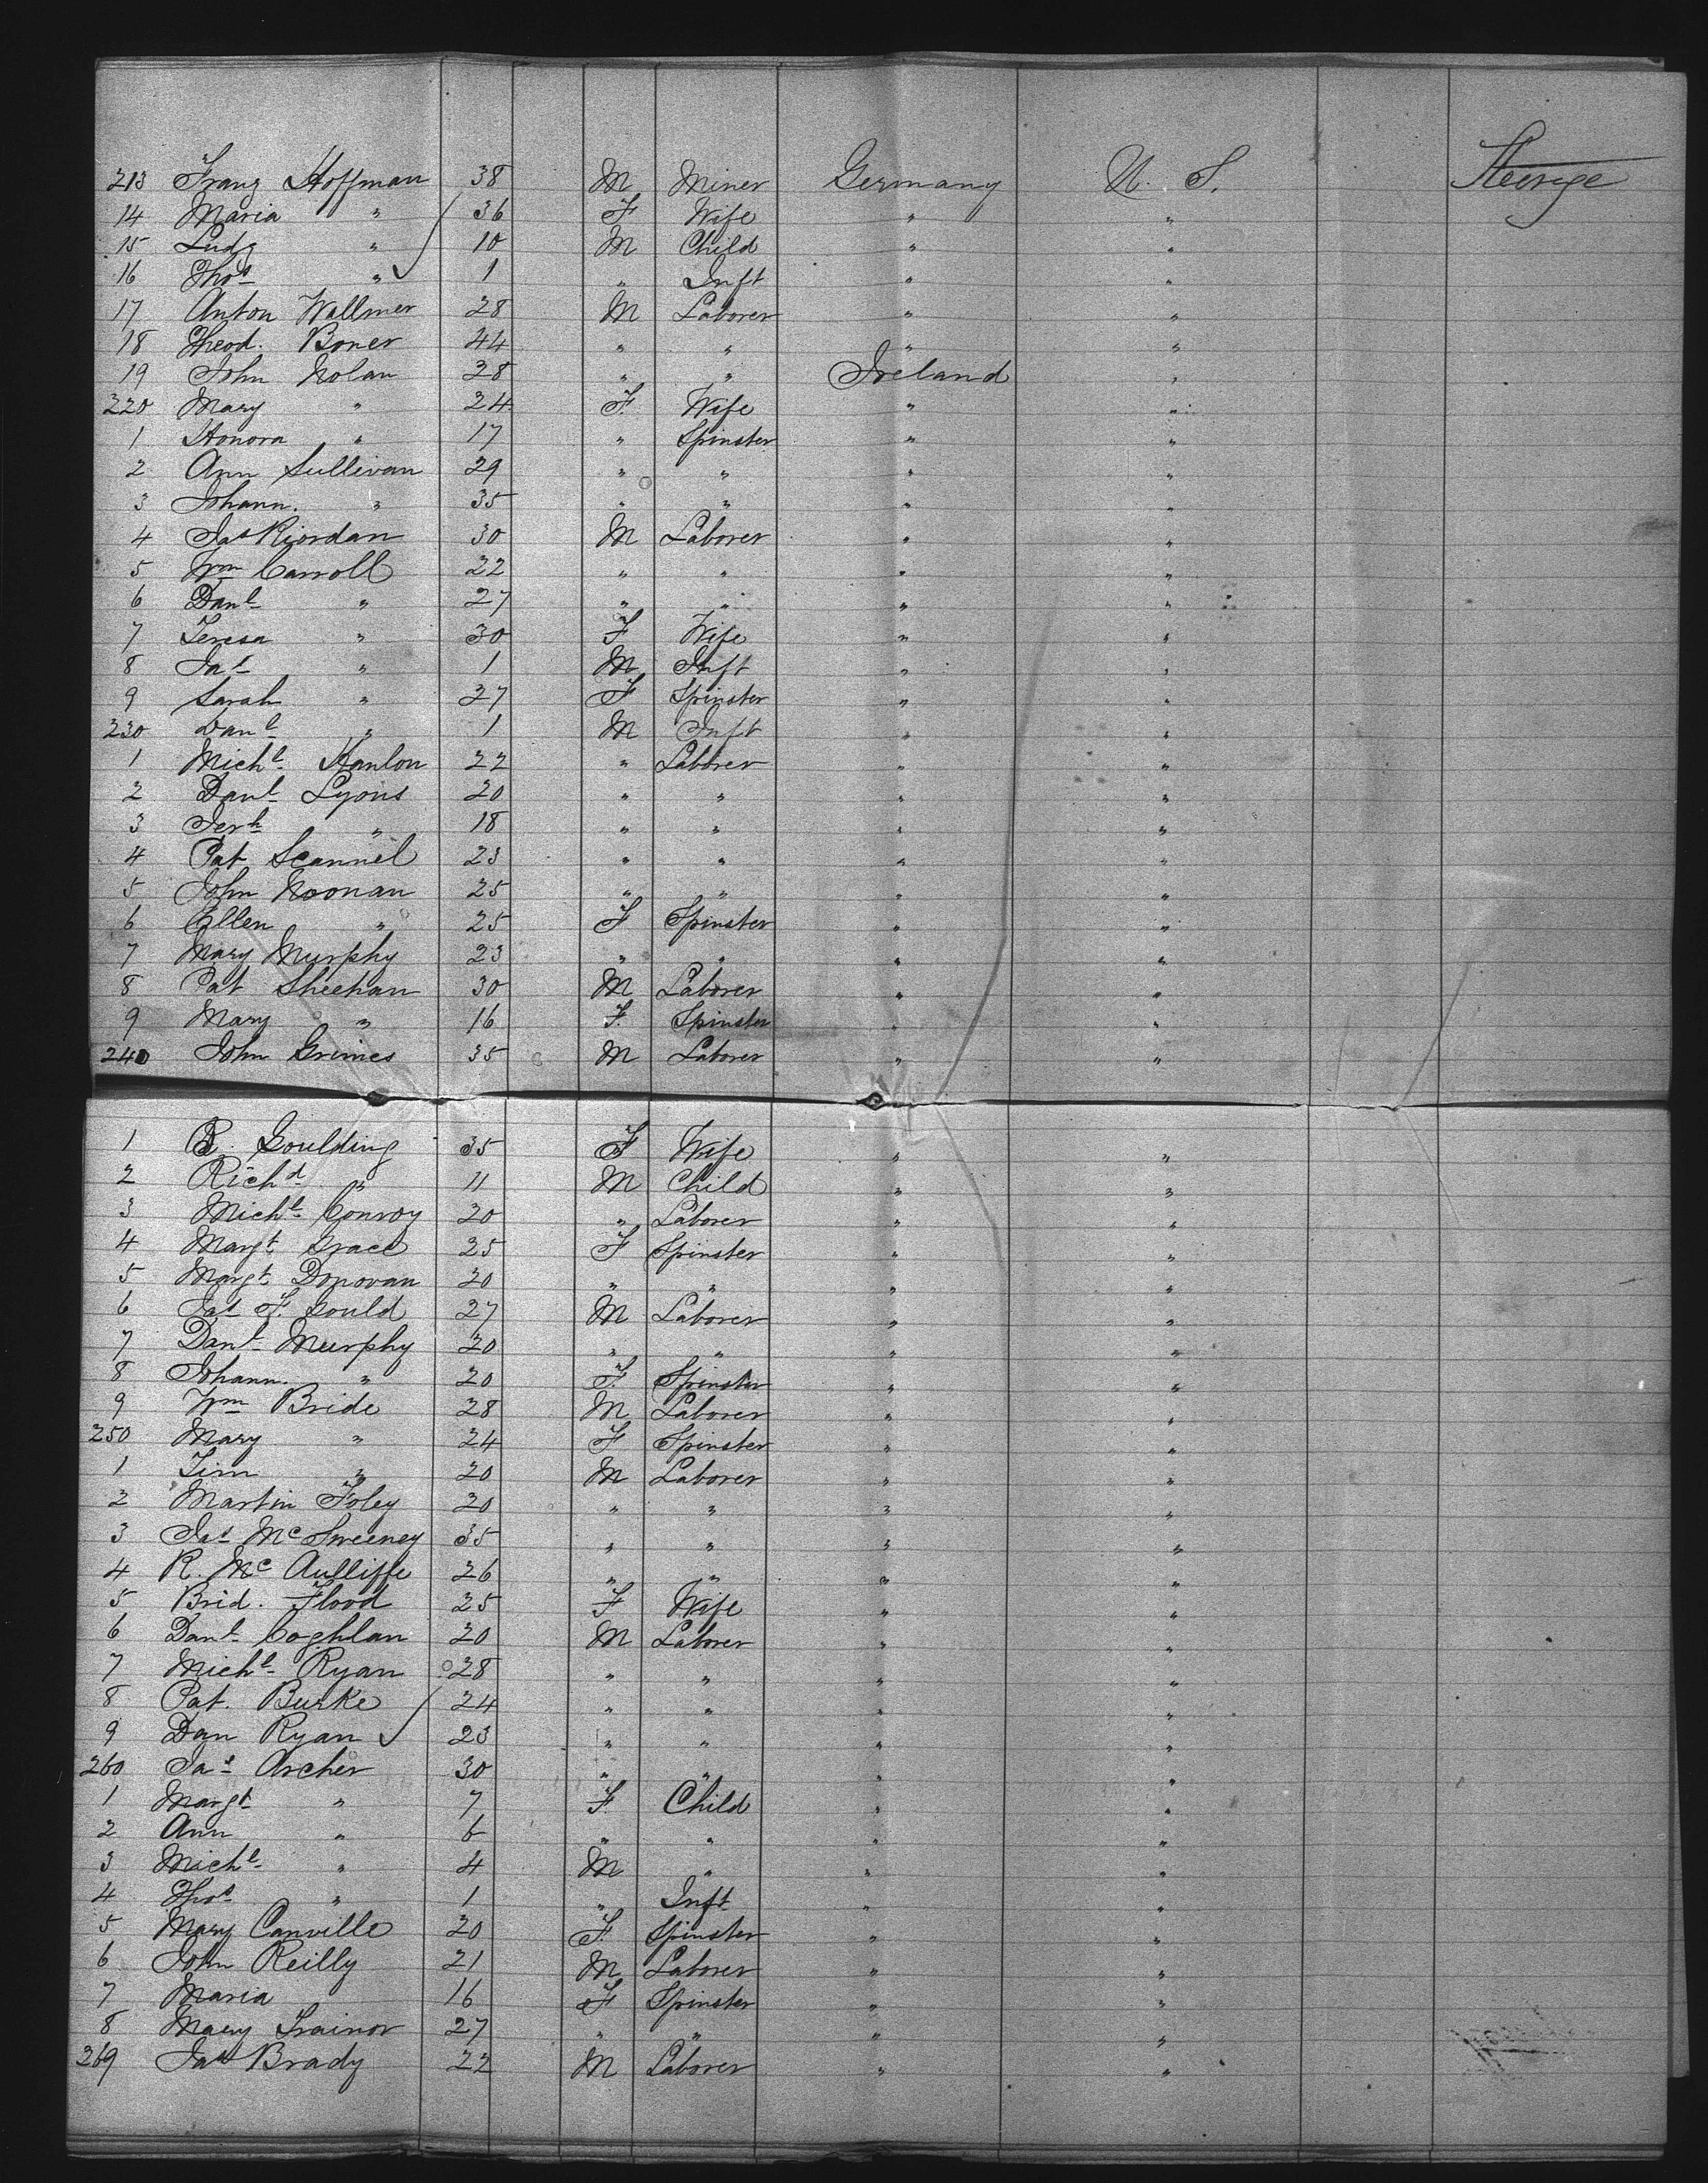 213 Franz Hoffman 38 M Miner Germany U. S. Steerage
14 Maria " 36 F Wife " "
15 Ludg " 10 M Child " "
16 Thos " 1 " Inft " "
17 Anton Wallmer 28 M Laborer " "
18 Theod. Boner 44 " " " "
19 John Nolan 28 " " Ireland "
220 Mary " 24 F. Wife " "
1 Honora " 17 " Spinster " "
2 Ann Sullivan 29 " " " "
3 Johann. " 35 " " " "
4 Jas Riordan 30 M Laborer " "
5 Wm Carroll 22 " " " "
6 Danl " 27 " " " "
7 Teresa " 30 F Wife " "
8 Jas " 1 M Inft " "
9 Sarah " 27 F Spinster " "
230 Danl " 1 M Inft " "
1 Michl Hanlon 22 " Laborer " "
2 Danl Lyons 20 " " " "
3 Jerh " 18 " " " "
4 Pat Scannel 23 " " " "
5 John Noonan 25 " " " "
6 Ellen " 25 F Spinster " "
7 Mary Murphy 23 " " " "
8 Pat Sheehan 30 M Laborer " "
9 Mary " 16 F. Spinster " "
240 John Grimes 35 M Laborer " "
1 Goulding 35 F Wife " "
2 Richd " 11 M Child " "
3 Michl Conroy 20 " Laborer " "
4 Margt Grace 25 F Spinster " "
5 Margt Donovan 20 " " " "
6 Jas F. Gould 27 M Laborer " "
7 Danl Murphy 20 " " " "
8 Johann. " 20 F. Spinster " "
9 Wm Bride 28 M Laborer " "
250 Mary " 24 F Spinster " "
1 Tim " 20 M Laborer " "
2 Martin Foley 20 " " " "
3 Jas McSweeney 35 " " " "
4 R. Mc Aulliffe 26 " " " "
5 Brid. Flood 25 F Wife " "
6 Danl Coghlan 20 M Laborer " "
7 Michl Ryan 28 " " " "
8 Pat. Burke 24 " " " "
9 Dan Ryan 23 " " " "
260 Jas Archer 30 " " " "
1 Margt " 7 F. Child " "
2 Ann " 6 " " " "
3 Michl " 4 M " " "
4 Thos " 1 " Inft " "
5 Mary Canville 20 F. Spinster " "
6 John Reilly 21 M Laborer " "
7 Maria 16 F Spinster " "
8 Mary Trainor 27 " " " "
269 Jas Brady 22 M Laborer " "